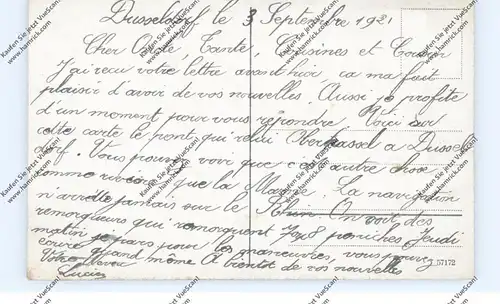 Dusseldorf le 3 Septembre 1921
Cher Oncle, Tante, Cousines et Cousin
J'ai reçu votre lettre avant hier, ça ma fait
plaisir d'avoir de vos nouvelles. Aussi je profite
d'un moment pour vous répondre. Voici sur
cette carte le pont qui relai Obercassel a Dussel
dorf. Vous pouvez voir que c'est autre chose
comme que la Marne. La navigation
n'arrete jamais sur le Rhin On voit des
remorqueurs qui remorquent 7 ou 8 péniches. Jeudi
matin je pars pour les manœuvres, vous pouvez
écrire quand même A bientot de vos nouvelles
Votre Neveu
Lucien
57172
Kaufen Sie jetzt VueScan
www.hamrick.com